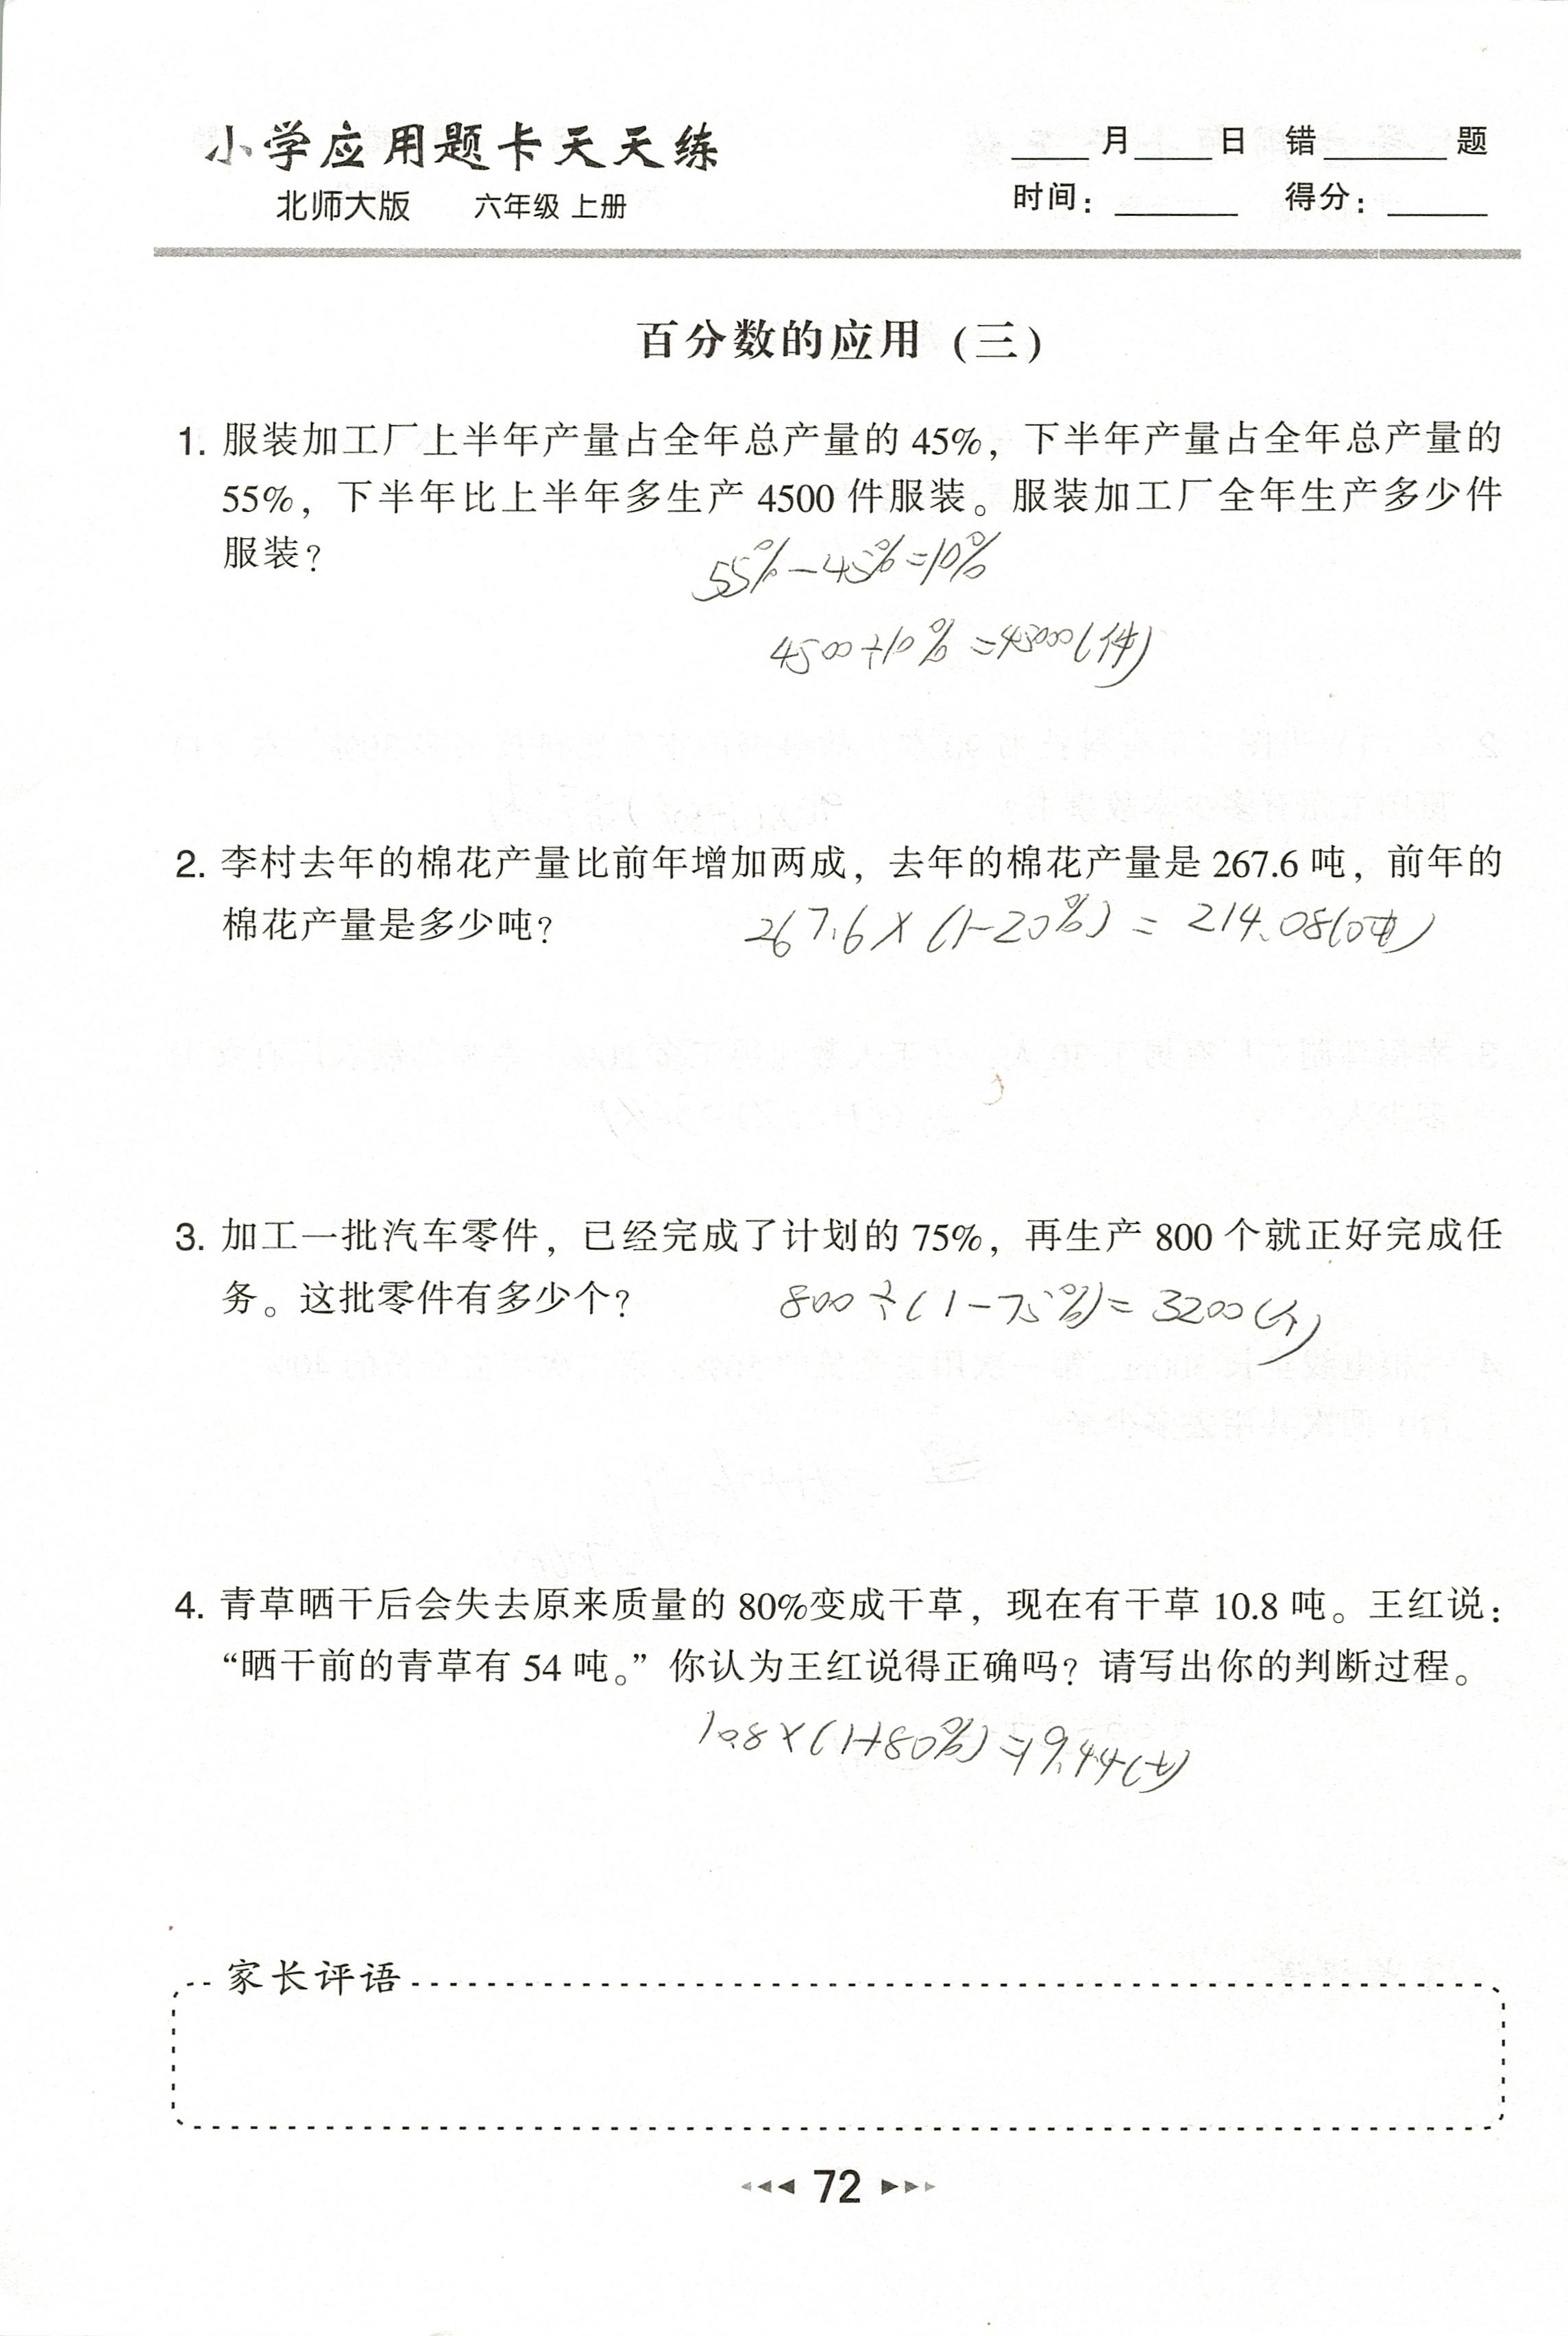 小学应用题卡天天练
北师大版 六年级 上册
____月____日 错______题
时间：______ 得分：_____
百分数的应用（三）
1. 服装加工厂上半年产量占全年总产量的 45%，下半年产量占全年总产量的
55%，下半年比上半年多生产 4500 件服装。服装加工厂全年生产多少件
服装？
55%－45%=10%
4500÷10%=45000(件)
2. 李村去年的棉花产量比前年增加两成，去年的棉花产量是 267.6 吨，前年的
棉花产量是多少吨？
267.6×(1-20%)=214.08(吨)
3. 加工一批汽车零件，已经完成了计划的 75%，再生产 800 个就正好完成任
务。这批零件有多少个？
800÷(1-75%)=3200(个)
4. 青草晒干后会失去原来质量的 80%变成干草，现在有干草 10.8 吨。王红说：
“晒干前的青草有 54 吨。”你认为王红说得正确吗？请写出你的判断过程。
10.8×(1+80%)=19.44
家长评语
72